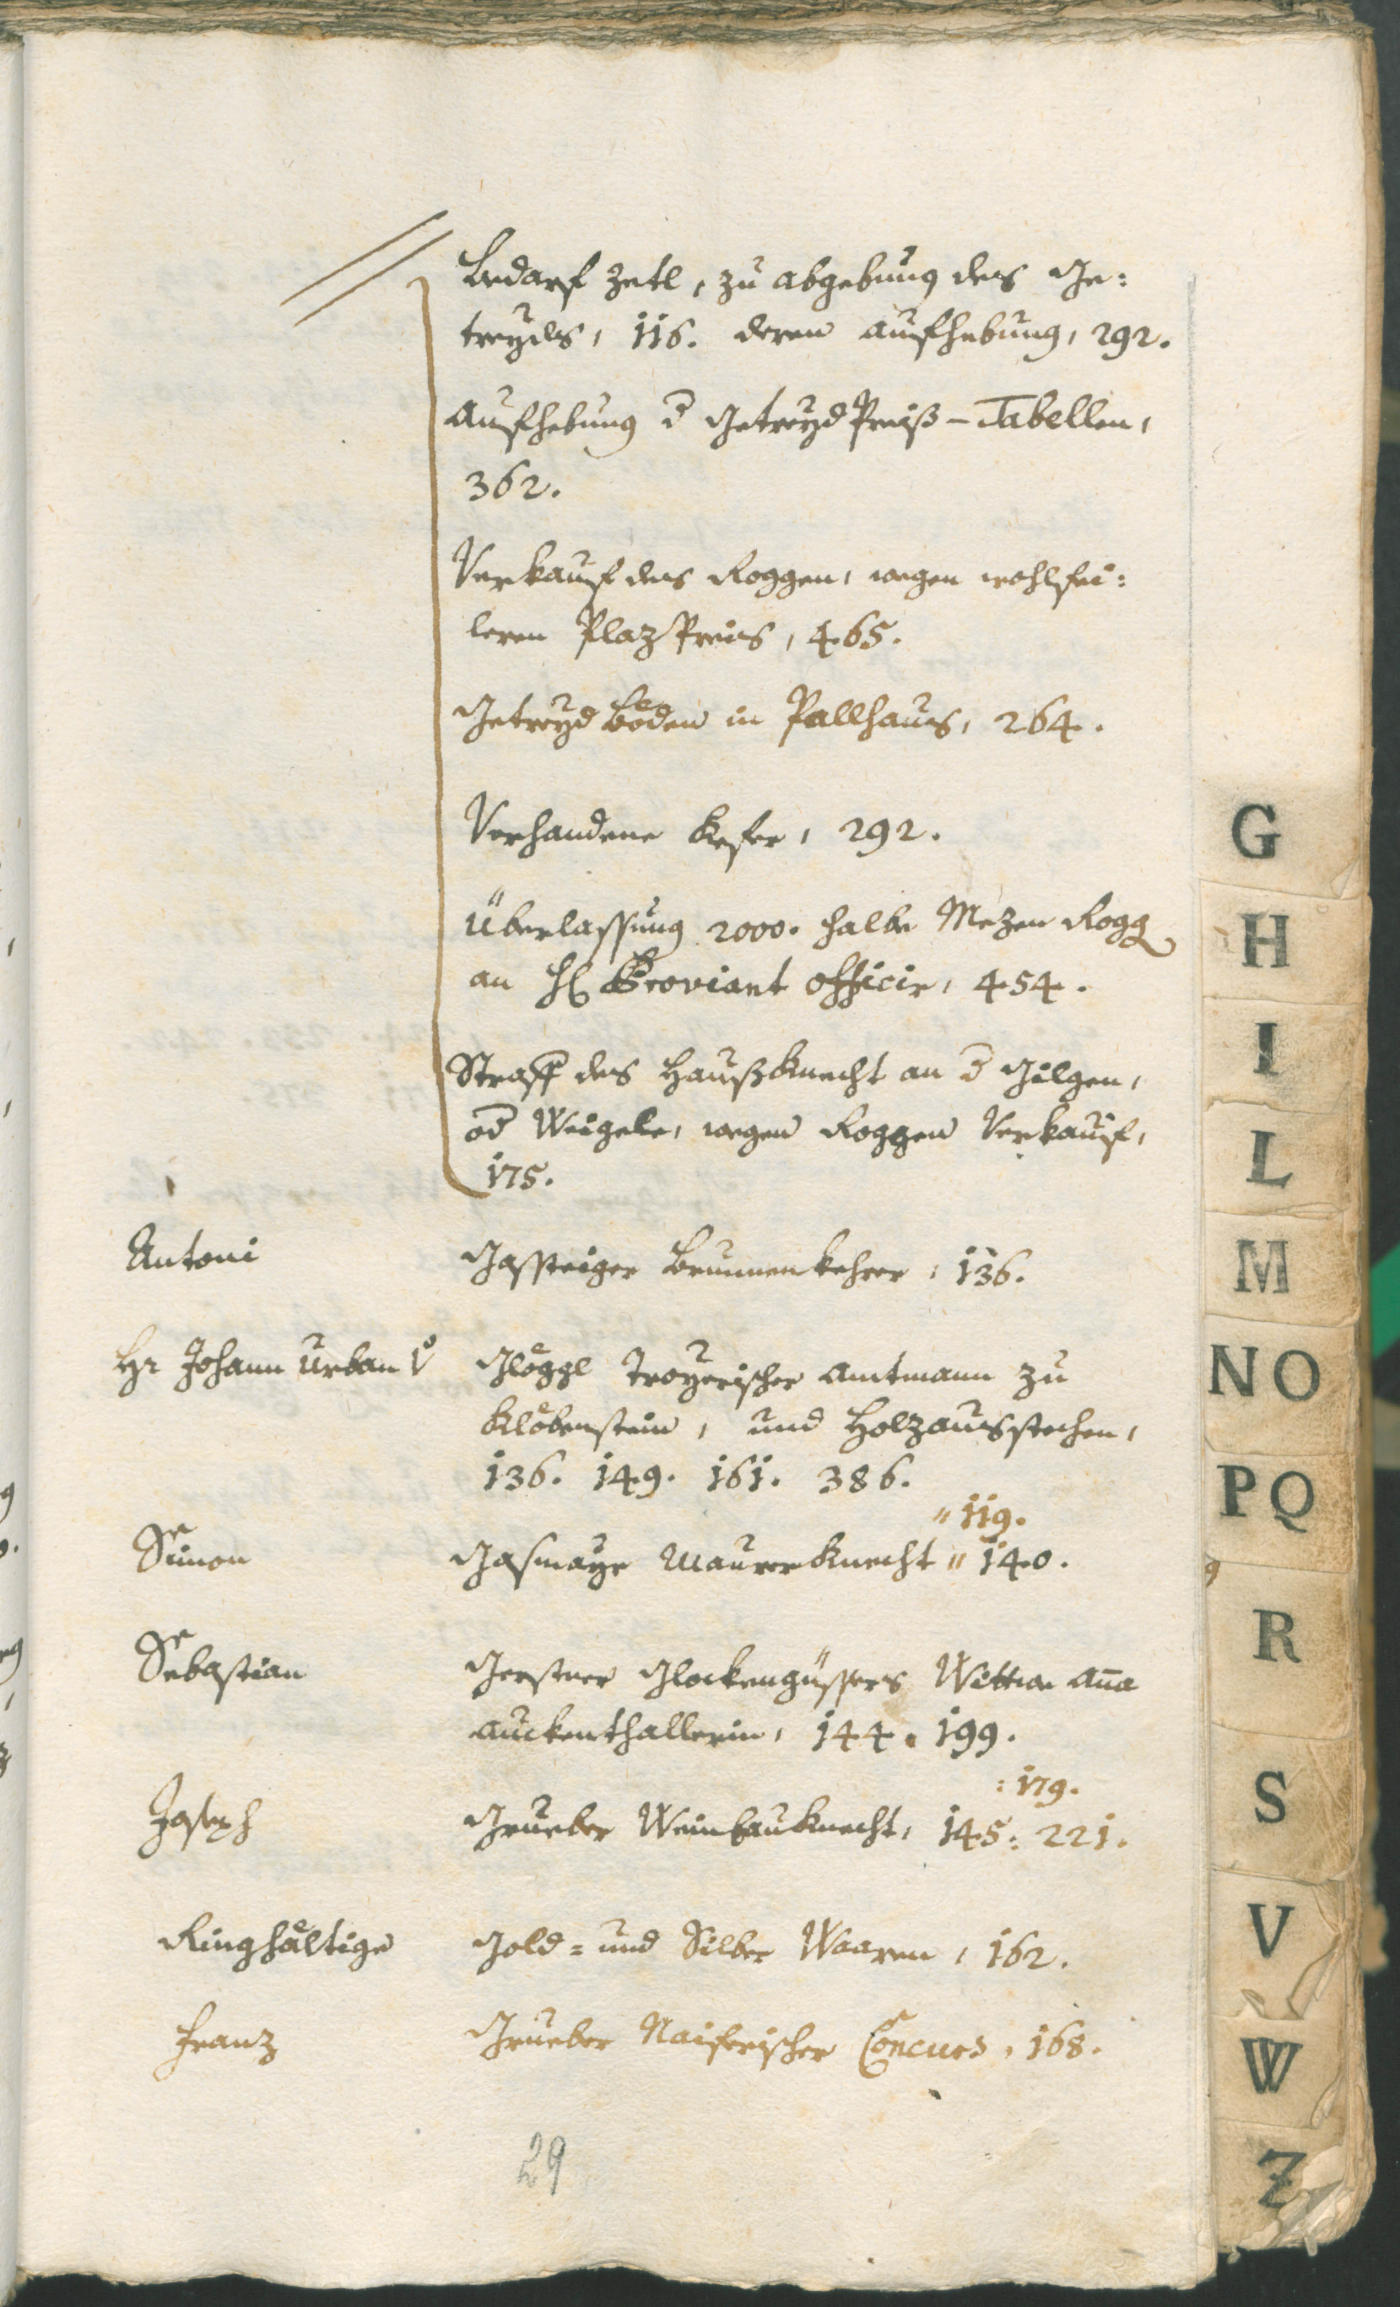 Bedarf zetl, zu abgebung des Ge:
treyds, 116. deren aufhebung, 292.
Aufhebung d Getreyd Preiß-Tabellen,
362.
Verkauf des Roggen, wegen wohlfei:
leren Plaz Preis, 465.
Getreyd böden in Pallhaus, 264.
Verhandene Kefer, 292.
Überlassung 2000. halbe Mezen Rogg
an H Proviant Officir, 454.
Straff des Haußknecht an d Gilgen,
od Weigele, wegen Roggen Verkauf,
175.
Antoni Gasteiger Brunnenkehrer, 136.
Hr Johann Urban V Glöggl Troyerischer Amtmann zu
Klobenstein, und Holzausstechen,
136. 149. 161. 386.
" 119.
Simon Gasmayr Maurerknecht " 140.
Sebastian Gerstner Glockengüssers Wittwe Aña
Auckenthallerin, 144. 199.
: 179.
Joseph Grueber Weinbauknecht, 145: 221.
Ringhältige Gold= und Silber Waaren, 162.
Franz Grueber Naiferischer Concurs, 168.
29
G
H
I
L
M
NO
PQ
R
S
V
W
Z